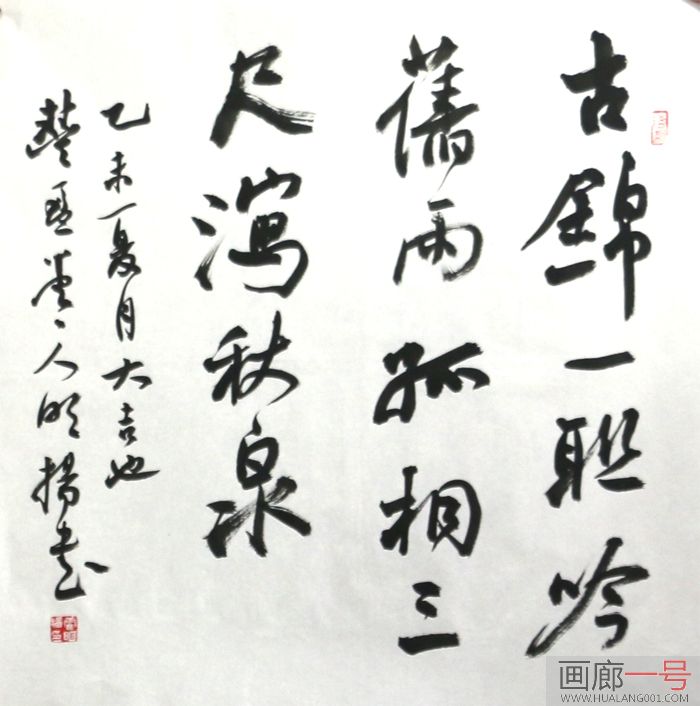 古錦一聯吟
舊雨孤相三
尺瀉秋泉
乙未夏月大吉也
人明揚書
画廊一号
WWW.HUALANG001.COM